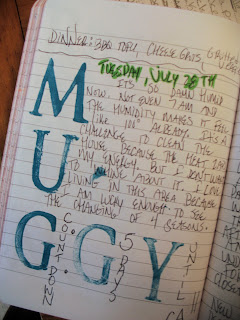 DINNER: BBQ TOFU, CHEESE GRITS,
TUESDAY JULY 28TH
M
U
G
G
Y
IT'S SO DAMN HUMID
NOW. NOT EVEN 7 AM AND
THE HUMIDITY MAKES IT FEEL
LIKE 100° ALREADY. IT'S A
CHALLENGE TO CLEAN THE
HOUSE BECAUSE THE HEAT ZAPS
MY ENERGY. BUT I DON'T WANT
TO WHINE ABOUT IT. I LOVE
LIVING IN THIS AREA BECAUSE
I AM LUCKY ENOUGH TO SEE
THE CHANGING OF 4 SEASONS.
COUNT DOWN:
5 DAYS
UNTIL
CA